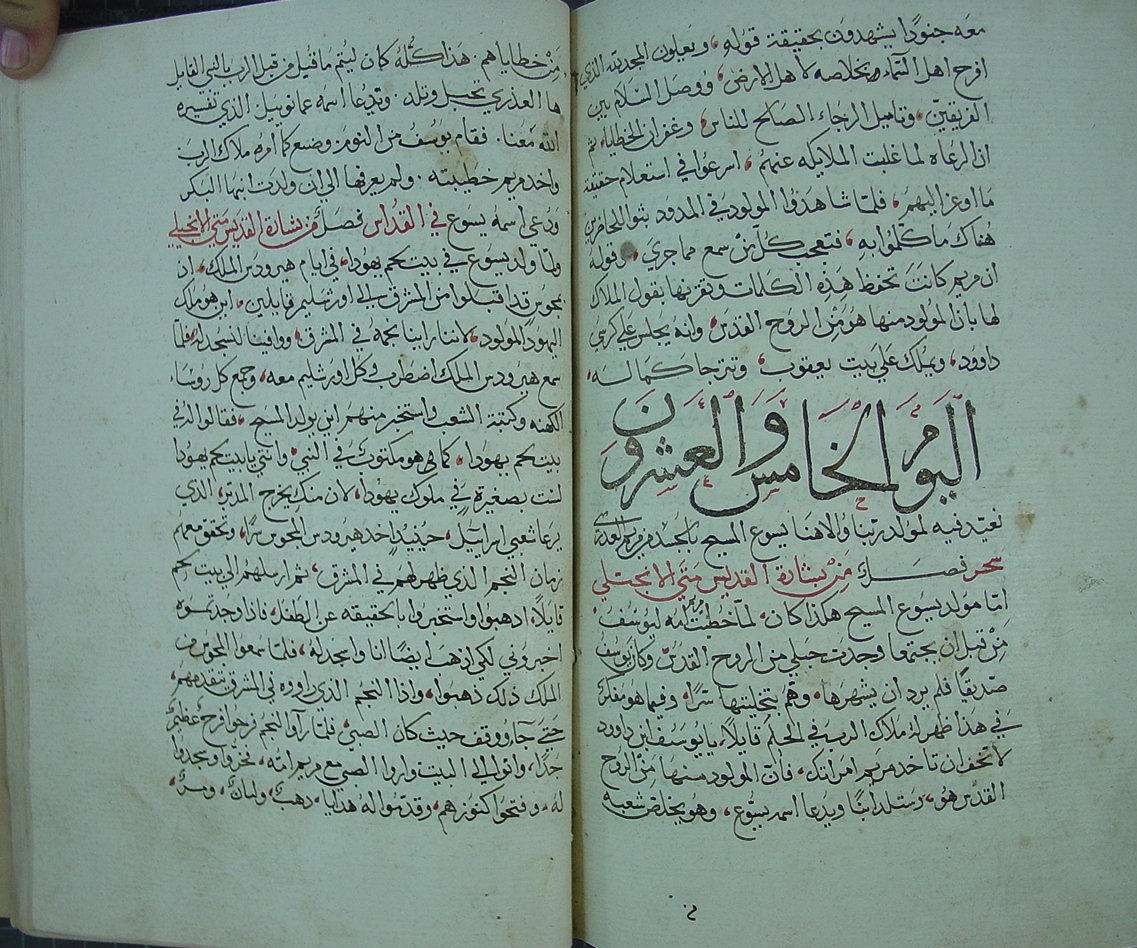 معه جنودًا يشهدون بحقيقة قوله، ويعلون المجد لله الذي
افرح اهل السماء بخلاصه لاهل الارض، ووصل السلام بين
الفريقين، وتاميل الرجاء الصالح للناس، وغفران الخطايا، ثم
ان الرعاه لما غابت الملايكه عنهم، اسرعوا في استعلام حقيقة
ما اوعز اليهم، فلما شاهدوا المولود في المدود بثوا للحاضرين
هناك ما كلموا به، فتعجب كل من سمع مما جري، وقوله
ان مريم كانت تحفظ هذه الكلمات وتقرنها بقول الملاك
لها بان المولود منها هو من الروح القدس، وانه يجلس علي كرسي
داوود، ويملك علي بيت يعقوب، وتترجا كماله،
اليوم الخامس والعشرون
نعيد فيه لمولد ربنا والاهنا يسوع المسيح بالجسد من مريم العدري
سحر فصل من بشارة القديس متي الانجيلي
امّا مولد يسوع المسيح هكذا كان، لما خطبت مريم امه ليوسف،
من قبل ان يجتمعا وجدت حبلي من الروح القدس، وكان يوسف
صديقًا فلم يرد ان يشهرها، وهم بتخليتها سرًا، وفيما هو مفكر
في هذا ظهر له ملاك الرب في الحلم قايلًا، يا يوسف ابن داوود
لا تخف ان تاخد مريم امراتك، فان المولود منها من الروح
القدس هو، وستلد ابنًا ويدعا اسمه يسوع، وهو يخلص شعبه
من خطاياهم، هذا كله كان ليتم ما قيل من قبل الرب بالنبي القايل
ها العذري تحبل وتلد، ويدعا اسمه عمانوييل الذي تفسيره
الله معنا، فقام يوسف من النوم وصنع كما امره ملاك الرب
واخد مريم خطيبته، ولم يعرفها الي ان ولدت ابنها البكر
ودعي اسمه يسوع في القداس فصل من بشارة القديس متي الانجيلي
ولما ولد يسوع في بيت لحم يهودا، في ايام هيرودس الملك، اذ
مجوس قد اقبلوا من المشرق الي اورشليم قايلين، اين هو ملك
اليهود المولود، لاننا راينا نجمه في المشرق، ووافينا لنسجد له، فلما
سمع هيرودس الملك اضطرب وكل اورشليم معه، وجمع كل روسا
الكهنه وكتبة الشعب واستخبر منهم اين يولد المسيح، فقالوا له في
بيت لحم يهودا، كما هو مكتوب في النبي، وانتي يا بيت لحم يهودا
لست بصغيرة في ملوك يهودا، لان منك يخرج المدبر، الذي
يرعا شعبي اسراييل، حينيدٍ اخد هيرودس المجوس سرًا، وتحقق منهم
زمان النجم الذي ظهر لهم في المشرق، ثم ارسلهم الي بيت لحم
قايلًا، ادهبوا واستخبروا بالحقيقه عن الطفل، فاذا وجدتموه
اخبروني لكي ادهب ايضًا انا واسجد له، فلما سمعوا المجوس من
الملك ذلك دهبوا، واذا النجم الذي راووه في المشرق يتقدمهم،
حتي جاء ووقف حيث كان الصبي، فلما راوا النجم فرحوا فرحًا عظيمًا
جدًا، واتوا الي البيت وراوا الصبي مع مريم امه، فخروا وسجدوا
له، وفتحوا كنوزهم، وقدموا له هدايا، دهبًا، ولبانًا، ومرًا،